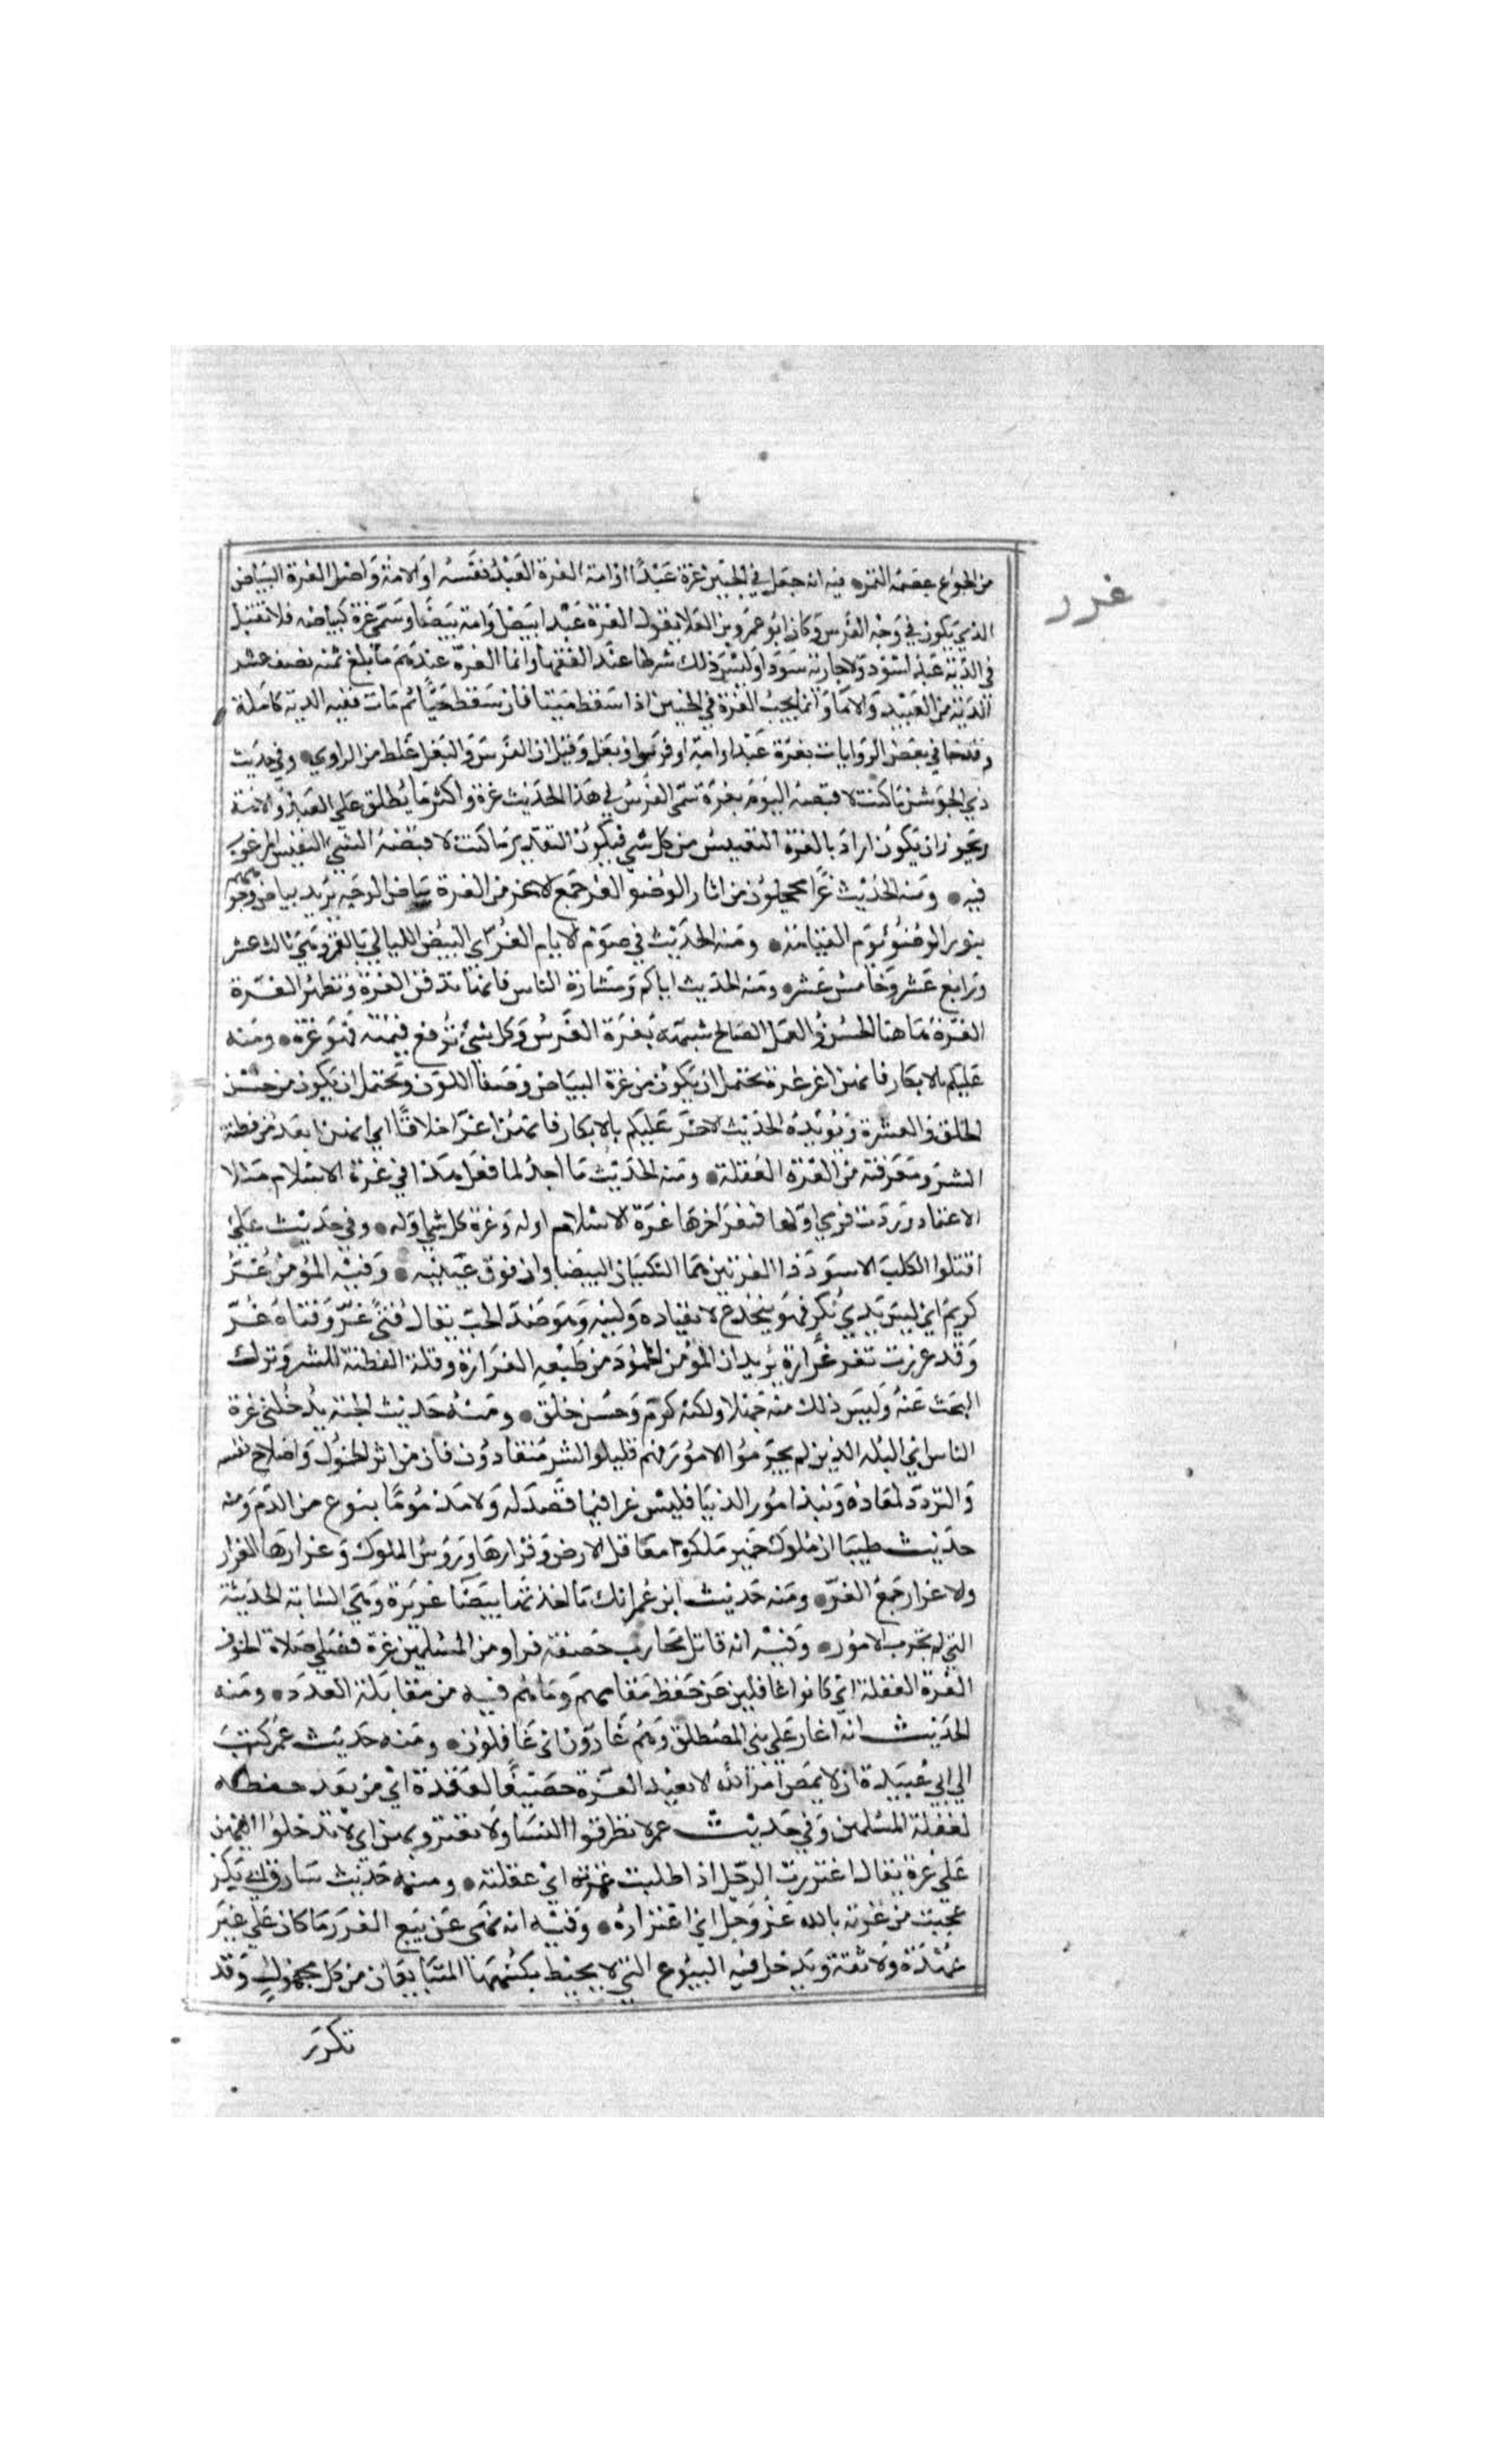 غرر
من الجوع بعصمه التمره فيه انه جعل في الجنين غرة عبدًا او امة الغرة العبد نفسه او الامة واصل الغرة البياض
الذي يكون في وجه الفرس وكان ابو عمرو بن العلا يقول الغرة عبد ابيض او امة بيضا وسمى غرة لبياضه فلا تقبل
في الدية عبد اسود ولا جارية سودا وليس ذلك شرطا عند الفقها وانما الغرة عندهم ما بلغ ثمنه نصف عشر
الدية من العبيد والاما وانما يجب الغرة في الجنين اذا سقط ميتا فان سقط حيًّا ثم مات ففيه الدية كاملة
وقد جا في بعض الروايات بغرة عبد او امة او فرس او بغل وقيل ان الفرس والبغل غلط من الراوي وفي حديث
ذي الجوشن ما كنت لاقبضه اليوم بغرة سمى الفرس في هذا الحديث غرة واكثر ما يطلق على العبد والامة
ويجوز ان يكون اراد بالغرة النفيس من كل شي فيكون التقدير ما كنت لاقبضه الشي النفيس المرغوب
فيه ومنه الحديث غرا محجلون من اثار الوضو الغر جمع لاغر من الغرة بياض الوجه يريد بياض وجوههم
بنور الوضوء يوم القيامة ومنه الحديث في صوم لايام الغر اي البيض الليالي بالقمر وهي ثالث عشر
ورابع عشر وخامس عشر ومنه الحديث اياكم ومشارة الناس فانها تدفن الغرة وتظهر الغرة
الغرة هاهنا الحسن والعمل الصالح شبهه بغرة الفرس وكل شي ترفع قيمته فهو غرة ومنه
عليكم بالابكار فانهن اغر غرة يحتمل ان يكون من غرة البياض وصفا اللون ويحتمل ان يكون من حسن
الخلق والعشرة ويويده الحديث لاخر عليكم بالابكار فانهن اغر اخلاقًا اي انهن ابعد من فطنة
الشر ومعرفته من الغرة الغفلة ومنه الحديث ما اجد لما فعل هذا في غرة الاسلام مثلا
الا غنما وردت فرمي اولها فنفر اخرها غرة الاسلام اوله وغرة كل شي اوله وفي حديث علي
اقتلوا الكلب الاسود ذا الغرتين هما النكتتان البيضاوان فوق عينيه وفيه المؤمن غر
كريم اي ليس بذي نكر فهو ينخدع لانقياده ولينه وهو ضد الخب يقال فتى غر وفتاة غر
وقد غررت تغر غرارة يريد ان المؤمن المحمود من طبعه الغرارة وقلة الفطنة للشر وترك
البحث عنه وليس ذلك منه جهلا ولكنه كرم وحسن خلق ومنه حديث الجنة يدخلني غرة
الناس اي البله الذين لم يجربوا الامور فهم قليلوا الشر منقادون فان من اثر الخمول واصلاح نفسه
والتزود لمعاده ونبذ امور الدنيا فليس غرا فيما قصد له ولا مذمومًا بنوع من الذم ومنه
حديث ظبيان ان ملوك حمير ملكوا معاقل الارض وقرارها ورؤس الملوك وغرارها الغرار
ولاغرار جمع الغر ومنه حديث ابن عمر انك ما اخذتها بيضا غريرة وهي الشابة الحديثة
التي لم تجرب الامور وفيه انه قاتل محارب خصفة فراو من المسلمين غرة فصلى صلاة الخوف
الغرة الغفلة اي كانوا غافلين عن حفظ مقامهم وما هم فيه من مقابلة العدو ومنه
الحديث انه اغار على بني المصطلق وهم غارون اي غافلون ومنه حديث عمر كتب
الي ابي عبيدة ان لا يمضي امر الله لا بعيد الغرة حصيف العقدة اي من بعد حفظه
لغفلة المسلمين وفي حديث عمر لا تطرقوا النسا ولا تغتروهن اي لا تدخلوا اليهن
على غرة يقال اغتررت الرجل اذا طلبت غرته اي غفلته ومنه حديث سارق ابي بكر
عجبت من غرته بالله عز وجل اي اغتراره وفيه انه نهى عن بيع الغرر ما كان على غير
عهدة ولا ثقة ويدخل فيه البيوع التي لا يحيط بكنهها المتبايعان من كل مجهول وقد
تكرر